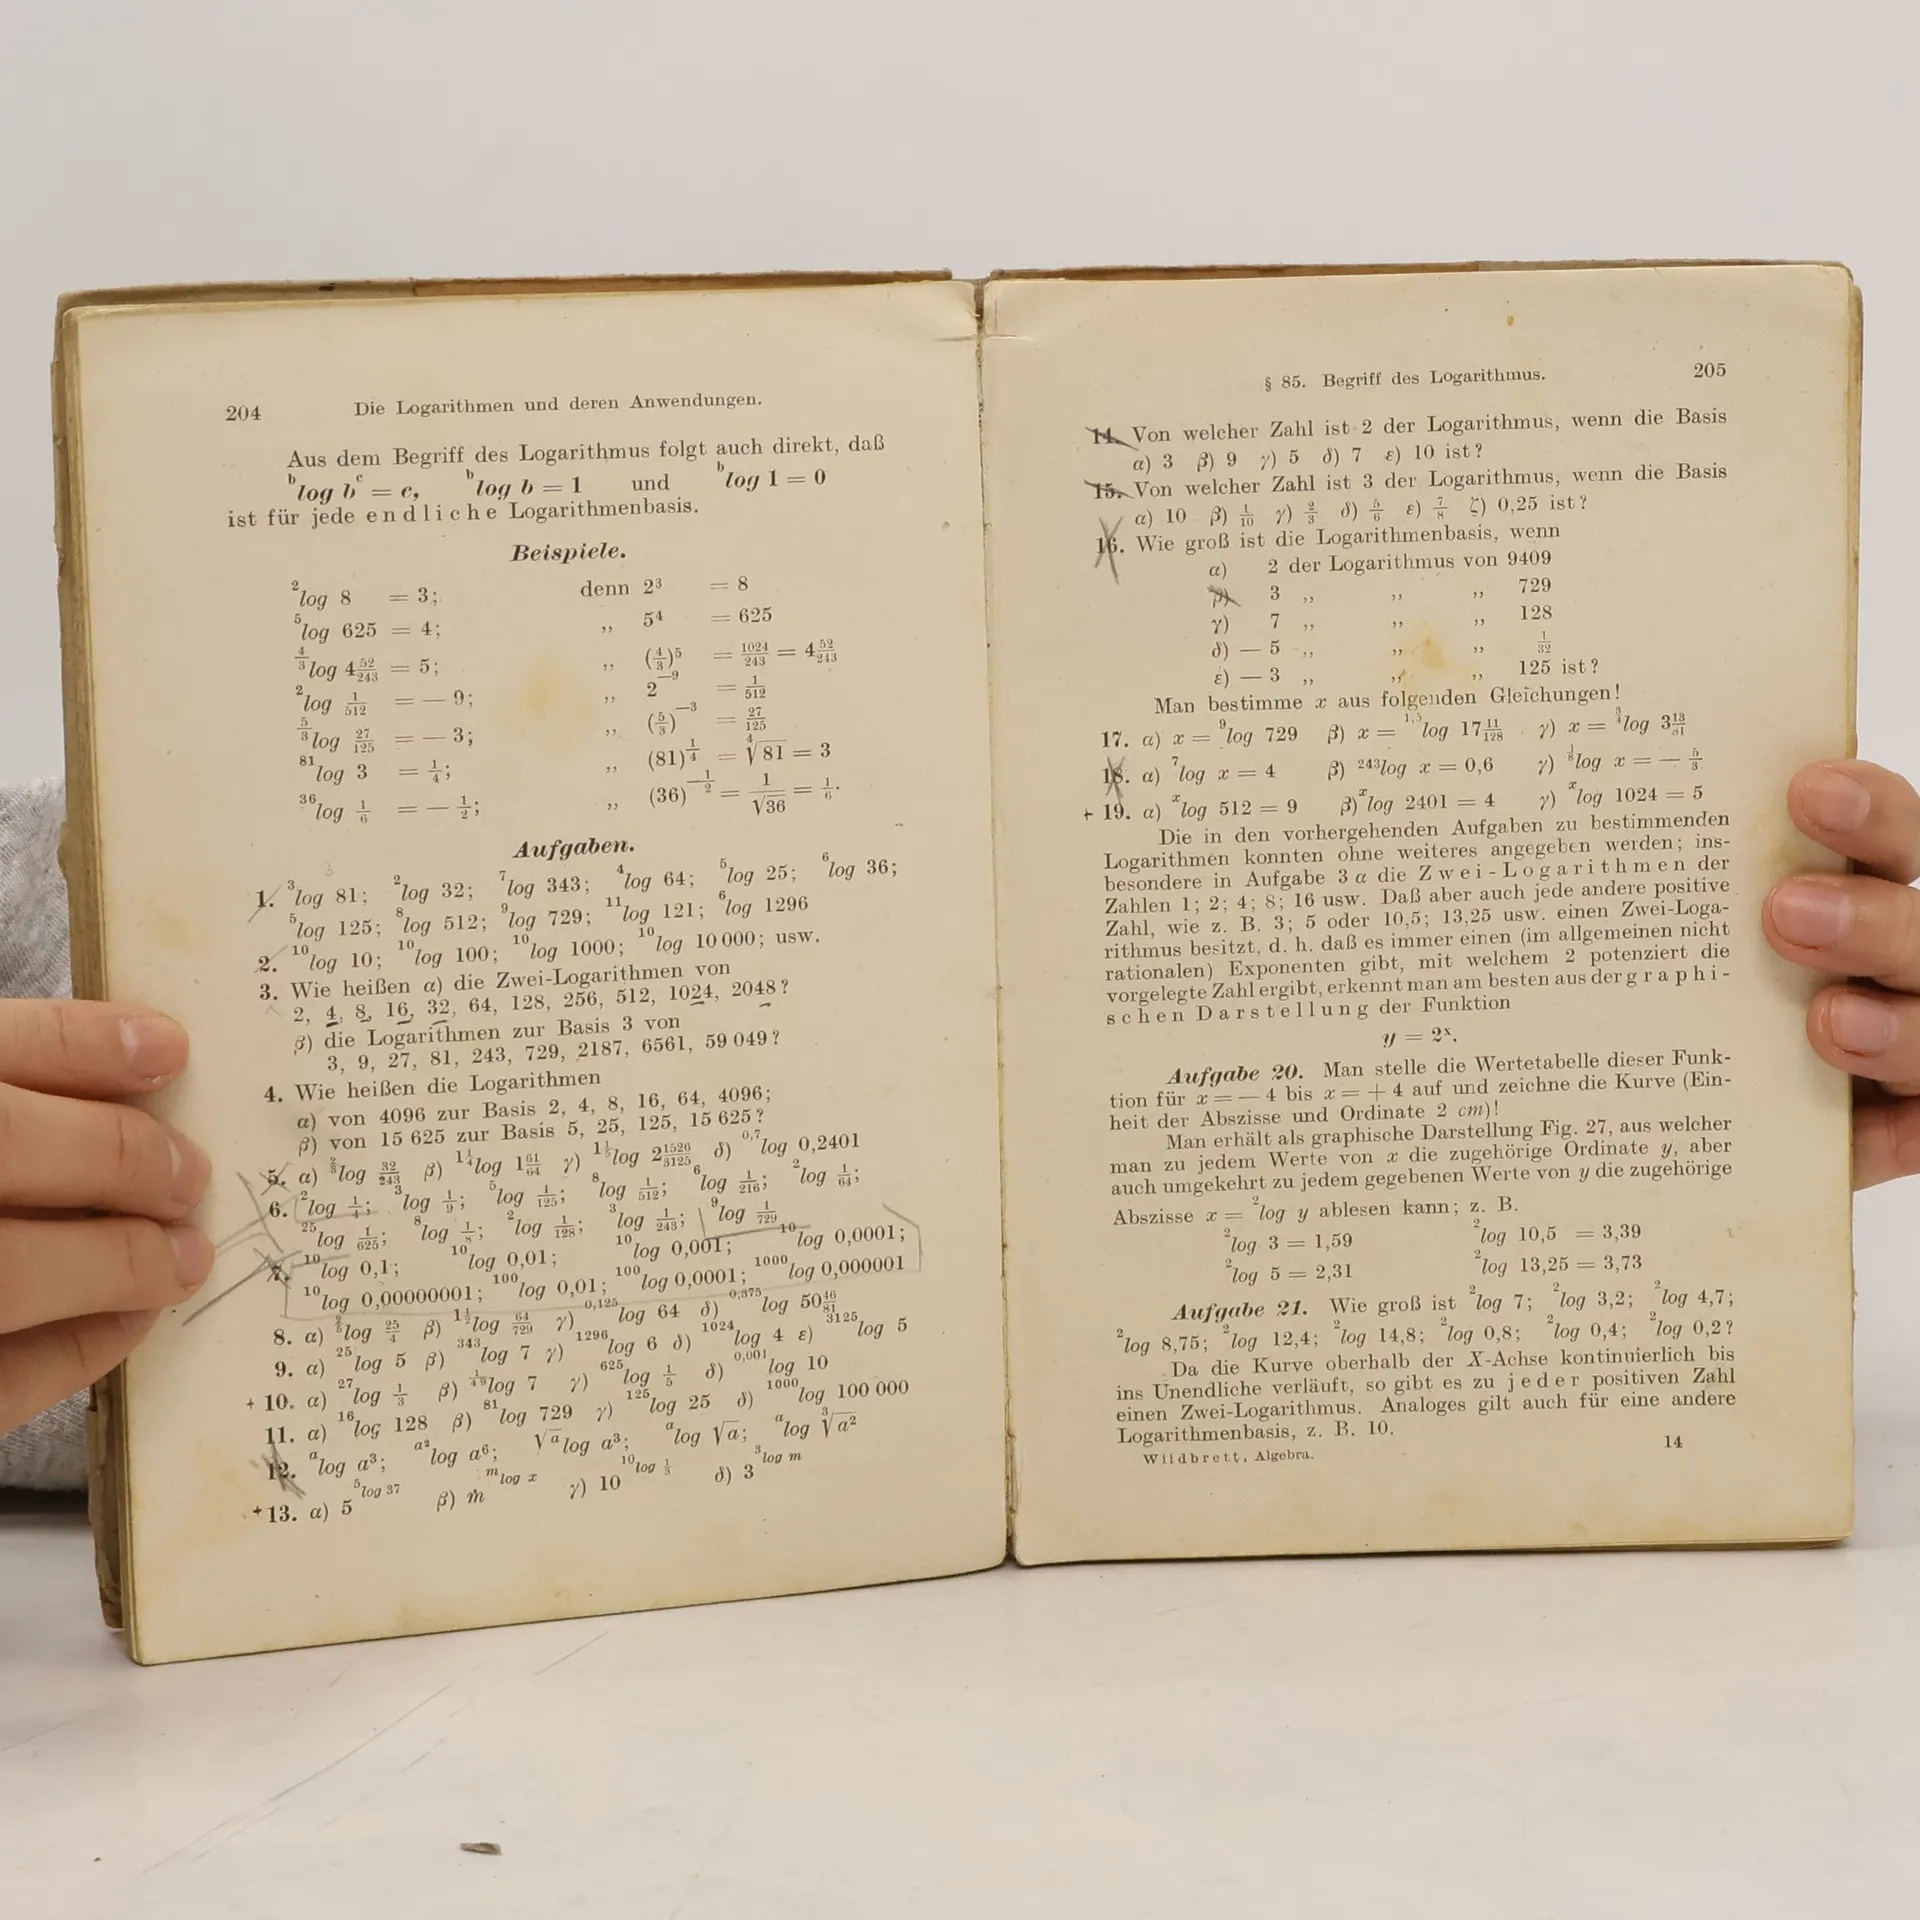 204 Die Logarithmen und deren Anwendungen.
Aus dem Begriff des Logarithmus folgt auch direkt, daß
ᵇlog bᶜ = c, ᵇlog b = 1 und ᵇlog 1 = 0
ist für jede endliche Logarithmenbasis.
Beispiele.
²log 8 = 3; denn 2³ = 8
⁵log 625 = 4; „ 5⁴ = 625
^(4/3)log 4 52/243 = 5; „ (4/3)⁵ = 1024/243 = 4 52/243
²log 1/512 = — 9; „ 2⁻⁹ = 1/512
^(5/3)log 27/125 = — 3; „ (5/3)⁻³ = 27/125
⁸¹log 3 = 1/4; „ (81)^(1/4) = ⁴√81 = 3
³⁶log 1/6 = — 1/2; „ (36)^(-1/2) = 1/√36 = 1/6.
Aufgaben.
1. ³log 81; ²log 32; ⁷log 343; ⁴log 64; ⁵log 25; ⁶log 36;
⁵log 125; ⁸log 512; ⁹log 729; ¹¹log 121; ⁶log 1296
2. ¹⁰log 10; ¹⁰log 100; ¹⁰log 1000; ¹⁰log 10 000; usw.
3. Wie heißen α) die Zwei-Logarithmen von
2, 4, 8, 16, 32, 64, 128, 256, 512, 1024, 2048?
β) die Logarithmen zur Basis 3 von
3, 9, 27, 81, 243, 729, 2187, 6561, 59 049?
4. Wie heißen die Logarithmen
α) von 4096 zur Basis 2, 4, 8, 16, 64, 4096;
β) von 15 625 zur Basis 5, 25, 125, 15 625?
5. α) ^(2/3)log 32/243 β) ^(1 1/4)log 1 61/64 γ) ^(1 1/5)log 2 1526/3125 δ) ^(0,7)log 0,2401
6. ²log 1/4; ³log 1/9; ⁵log 1/125; ⁸log 1/512; ⁶log 1/216; ²log 1/64;
²⁵log 1/625; ⁸log 1/8; ²log 1/128; ³log 1/243; ⁹log 1/729
7. ¹⁰log 0,1; ¹⁰log 0,01; ¹⁰log 0,001; ¹⁰log 0,0001;
¹⁰log 0,00000001; ¹⁰⁰log 0,01; ¹⁰⁰log 0,0001; ¹⁰⁰⁰log 0,000001
8. α) ^(2/5)log 25/4 β) ^(1 1/2)log 64/729 γ) ^(0,125)log 64 δ) ^(0,375)log 50 46/81
9. α) ²⁵log 5 β) ³⁴³log 7 γ) ¹²⁹⁶log 6 δ) ¹⁰²⁴log 4 ε) ³¹²⁵log 5
+ 10. α) ²⁷log 1/3 β) ^(1/49)log 7 γ) ⁶²⁵log 1/5 δ) ^(0,001)log 10
11. α) ¹⁶log 128 β) ⁸¹log 729 γ) ¹²⁵log 25 δ) ¹⁰⁰⁰log 100 000
12. ᵃlog a³; ^(a²)log a⁶; ^(√a)log a³; ᵃlog √a; ᵃlog ³√a²
+ 13. α) 5^(⁵log 37) β) m^(ᵐlog x) γ) 10^(¹⁰log 1/3) δ) 3^(³log m)
§ 85. Begriff des Logarithmus. 205
14. Von welcher Zahl ist 2 der Logarithmus, wenn die Basis
α) 3 β) 9 γ) 5 δ) 7 ε) 10 ist?
15. Von welcher Zahl ist 3 der Logarithmus, wenn die Basis
α) 10 β) 1/10 γ) 2/3 δ) 5/6 ε) 7/8 ζ) 0,25 ist?
16. Wie groß ist die Logarithmenbasis, wenn
α) 2 der Logarithmus von 9409
β) 3 „ „ „ 729
γ) 7 „ „ „ 128
δ) — 5 „ „ „ 1/32
ε) — 3 „ „ „ 125 ist?
Man bestimme x aus folgenden Gleichungen!
17. α) x = ⁹log 729 β) x = ^(1,5)log 17 11/128 γ) x = ^(3/4)log 3 13/81
18. α) ⁷log x = 4 β) ²⁴³log x = 0,6 γ) ^(1/8)log x = — 5/3
+ 19. α) ˣlog 512 = 9 β) ˣlog 2401 = 4 γ) ˣlog 1024 = 5
Die in den vorhergehenden Aufgaben zu bestimmenden
Logarithmen konnten ohne weiteres angegeben werden; ins-
besondere in Aufgabe 3 α die Zwei-Logarithmen der
Zahlen 1; 2; 4; 8; 16 usw. Daß aber auch jede andere positive
Zahl, wie z. B. 3; 5 oder 10,5; 13,25 usw. einen Zwei-Loga-
rithmus besitzt, d. h. daß es immer einen (im allgemeinen nicht
rationalen) Exponenten gibt, mit welchem 2 potenziert die
vorgelegte Zahl ergibt, erkennt man am besten aus der graphi-
schen Darstellung der Funktion
y = 2ˣ.
Aufgabe 20. Man stelle die Wertetabelle dieser Funk-
tion für x = — 4 bis x = + 4 auf und zeichne die Kurve (Ein-
heit der Abszisse und Ordinate 2 cm)!
Man erhält als graphische Darstellung Fig. 27, aus welcher
man zu jedem Werte von x die zugehörige Ordinate y, aber
auch umgekehrt zu jedem gegebenen Werte von y die zugehörige
Abszisse x = ²log y ablesen kann; z. B.
²log 3 = 1,59 ²log 10,5 = 3,39
²log 5 = 2,31 ²log 13,25 = 3,73
Aufgabe 21. Wie groß ist ²log 7; ²log 3,2; ²log 4,7;
²log 8,75; ²log 12,4; ²log 14,8; ²log 0,8; ²log 0,4; ²log 0,2?
Da die Kurve oberhalb der X-Achse kontinuierlich bis
ins Unendliche verläuft, so gibt es zu jeder positiven Zahl
einen Zwei-Logarithmus. Analoges gilt auch für eine andere
Logarithmenbasis, z. B. 10.
Wildbrett, Algebra. 14